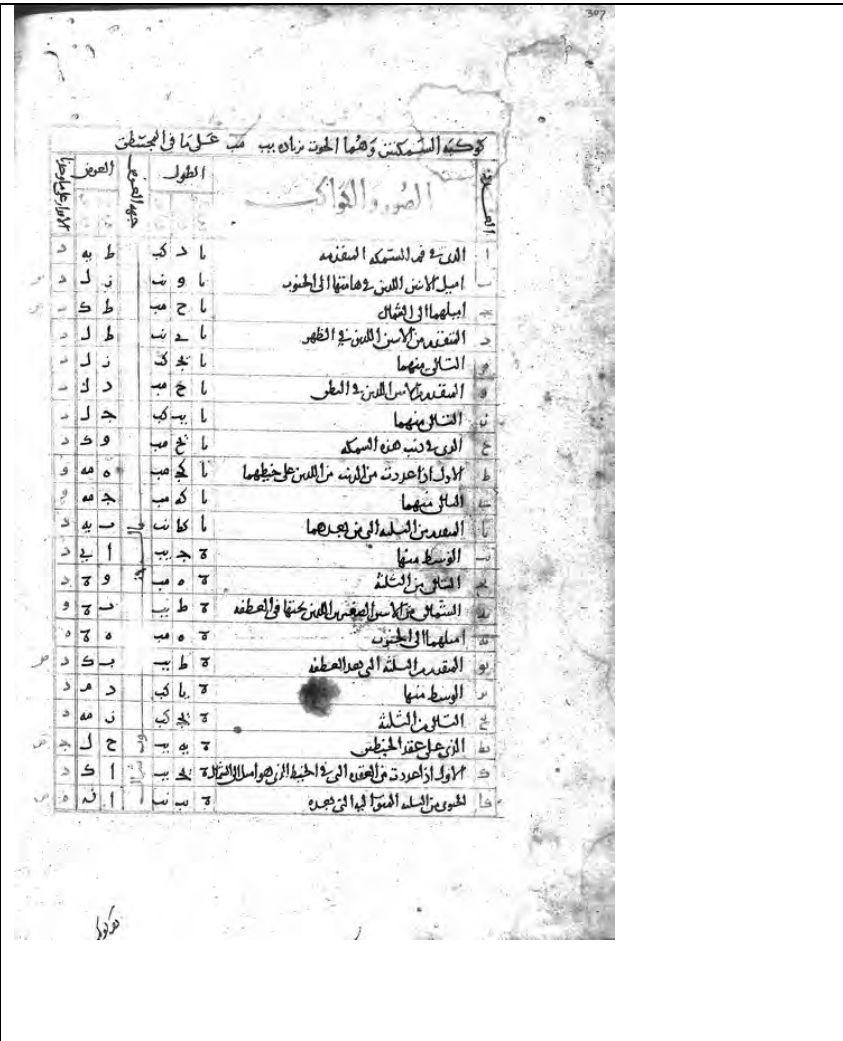 307
كوكبة السمكتين وهما الحوت بزيادة يب مب على ما في المجسطي
العدد الصور والكواكب الطول جهة العرض العرض
ا الذي في فم السمكة المتقدمة يا د كب ط يه د
ب اميل الاثنين اللذين في هامتها الى الجنوب يا و نب ز ل د
ج اميلهما الى الشمال يا ح مب ط ك د
د المتقدم من الاثنين اللذين في الظهر يا ي نب ط ل د
ه التالي منهما يا يج كب ز ل د
و المتقدم من الاثنين اللذين في البطن يا ح مب د ل د
ز التالي منهما يا يب كب ج ل د
ح الذي في ذنب هذه السمكة يا يح مب و ك د
ط الاول اذا عددت من الذنب من اللذين على خيطهما يا كج مب ه مه و
ي التالي منهما يا كه مب ج مه و
يا المتقدم من الثلثة التي من بعدهما يا كط نب ب يه د
يب الوسط منها ة ج يب ا ي د
يج التالي من الثلثة ة ه مب و ة د
يد الشمالي من الاثنين الصغيرين اللذين تحتها في العطفة ة ط يب ب ة و
يه اميلهما الى الجنوب ة ه مب ه ة ه
يو المتقدم من الثلثة التي بعد العطفة ة ط يب ب ك د
يز الوسط منها ة يا كب د م د
يح التالي من الثلثة ة يج كب ز مه د
يط الذي على عقد الخيطين ة يه يب ح ل ج
ك الاول اذا عددت من العقدة التي في الخيط الذي هو اميل الى الشمال ة يج يب ا ك د
كا الجنوبي من الثلثة المتوالية التي بعده ة يب نب ا ن ه